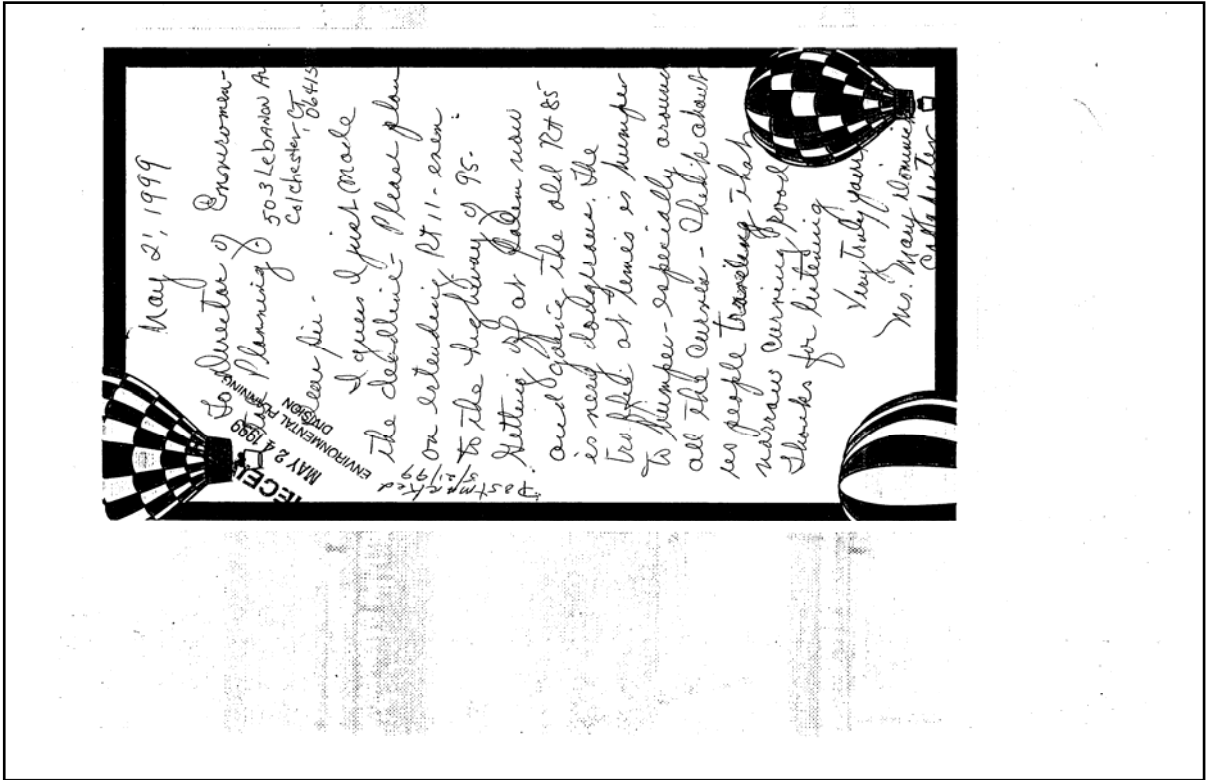 May 21, 1999
To Director of Environmen-
Planning
503 Lebanon Av
Colchester, CT
06415
Dear Sir -
I guess I just made
the deadline - Please plan
on extending Rt 11 - even
to the highway of 95.
Getting off at Salem now
and going the old Rt 85
is very dangerous. The
traffic at times is bumper
to bumper - especially around
all the curves - Think about
us people traveling that
narrow curving road
Thanks for listening
Very truly yours
Ms. Mary
Colchester
Postmarked
5/21/99
RECEI
MAY 24 1999
ENVIRONMENTAL PLANNING
DIVISION